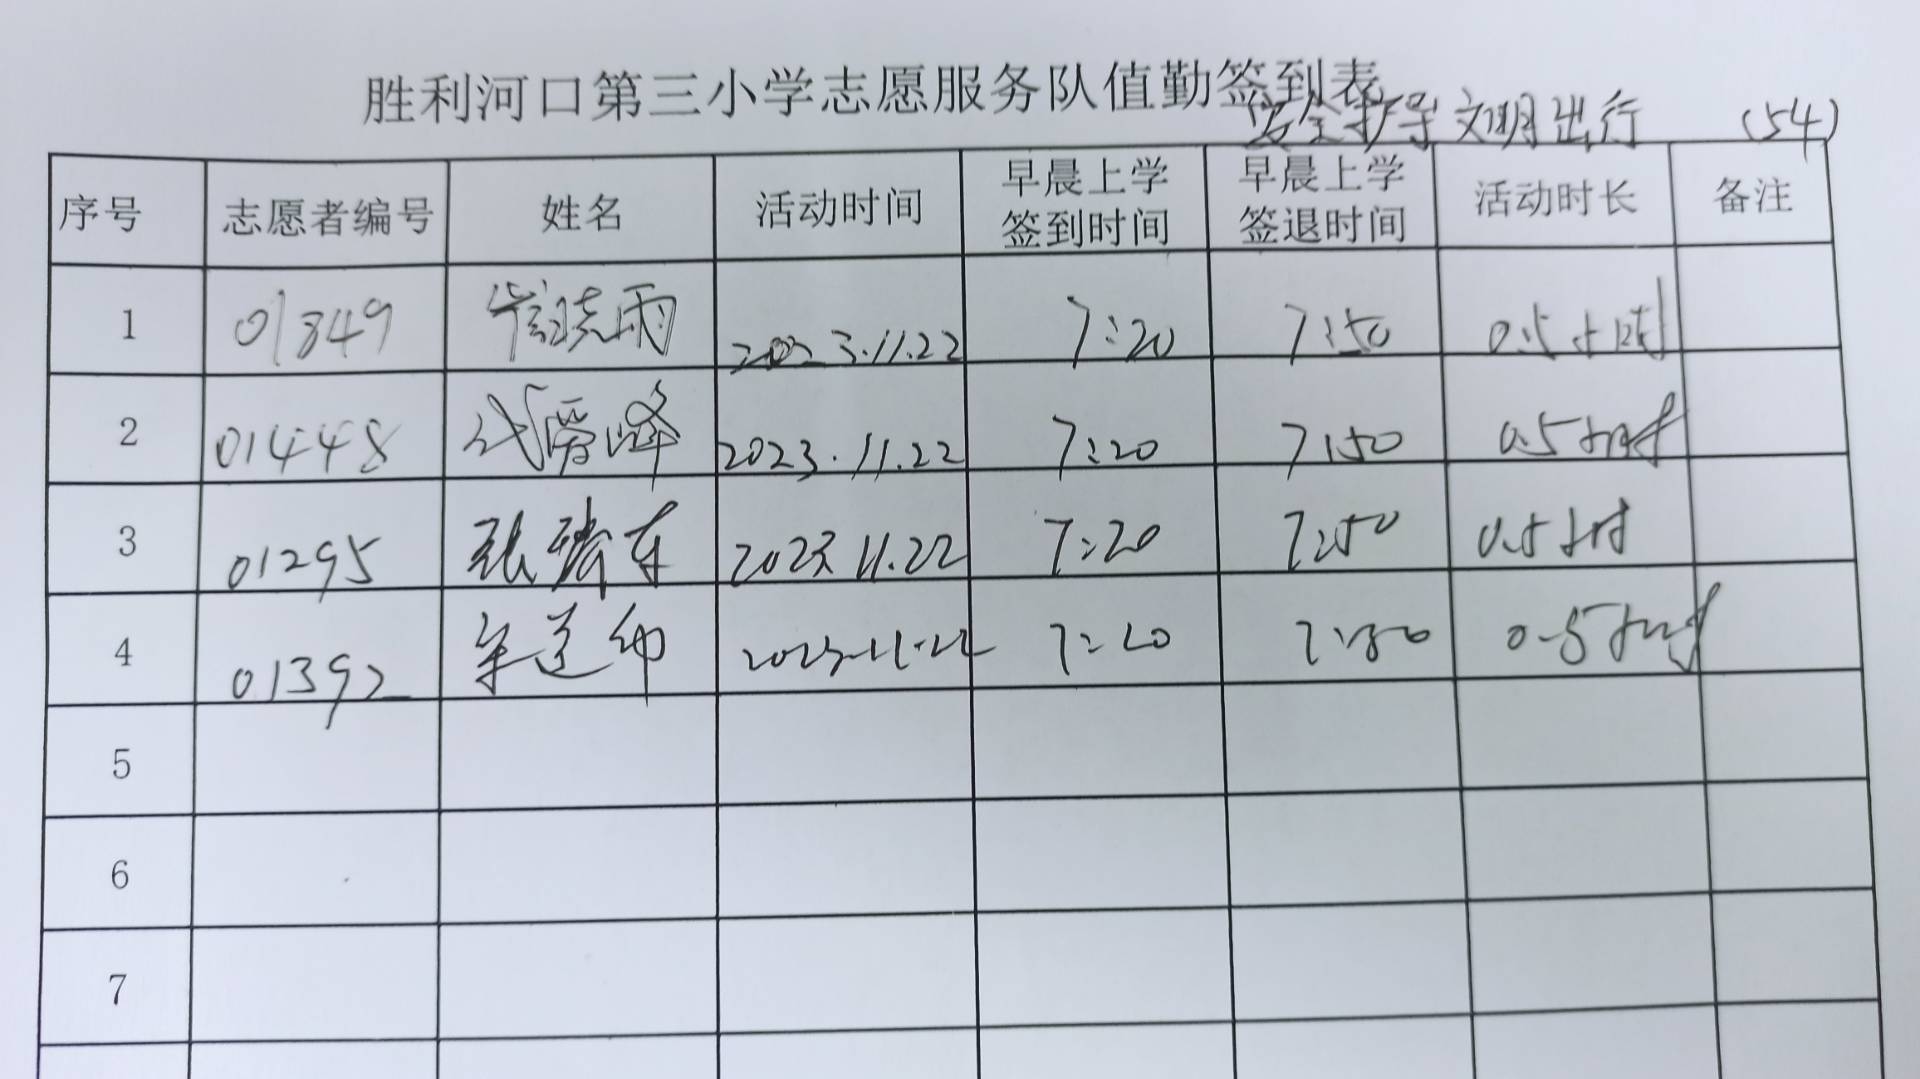 胜利河口第三小学志愿服务队值勤签到表
安全护导 文明出行 (54)
序号 志愿者编号 姓名 活动时间 早晨上学签到时间 早晨上学签退时间 活动时长 备注
1 01849 崔晓雨 2023.11.22 7:20 7:50 0.5小时
2 01448 代爱峰 2023.11.22 7:20 7:50 0.5小时
3 01295 张瑞东 2023 11.22 7:20 7:50 0.5小时
4 01392 2023.11.22 7:20 7:50 0.5小时
5
6
7